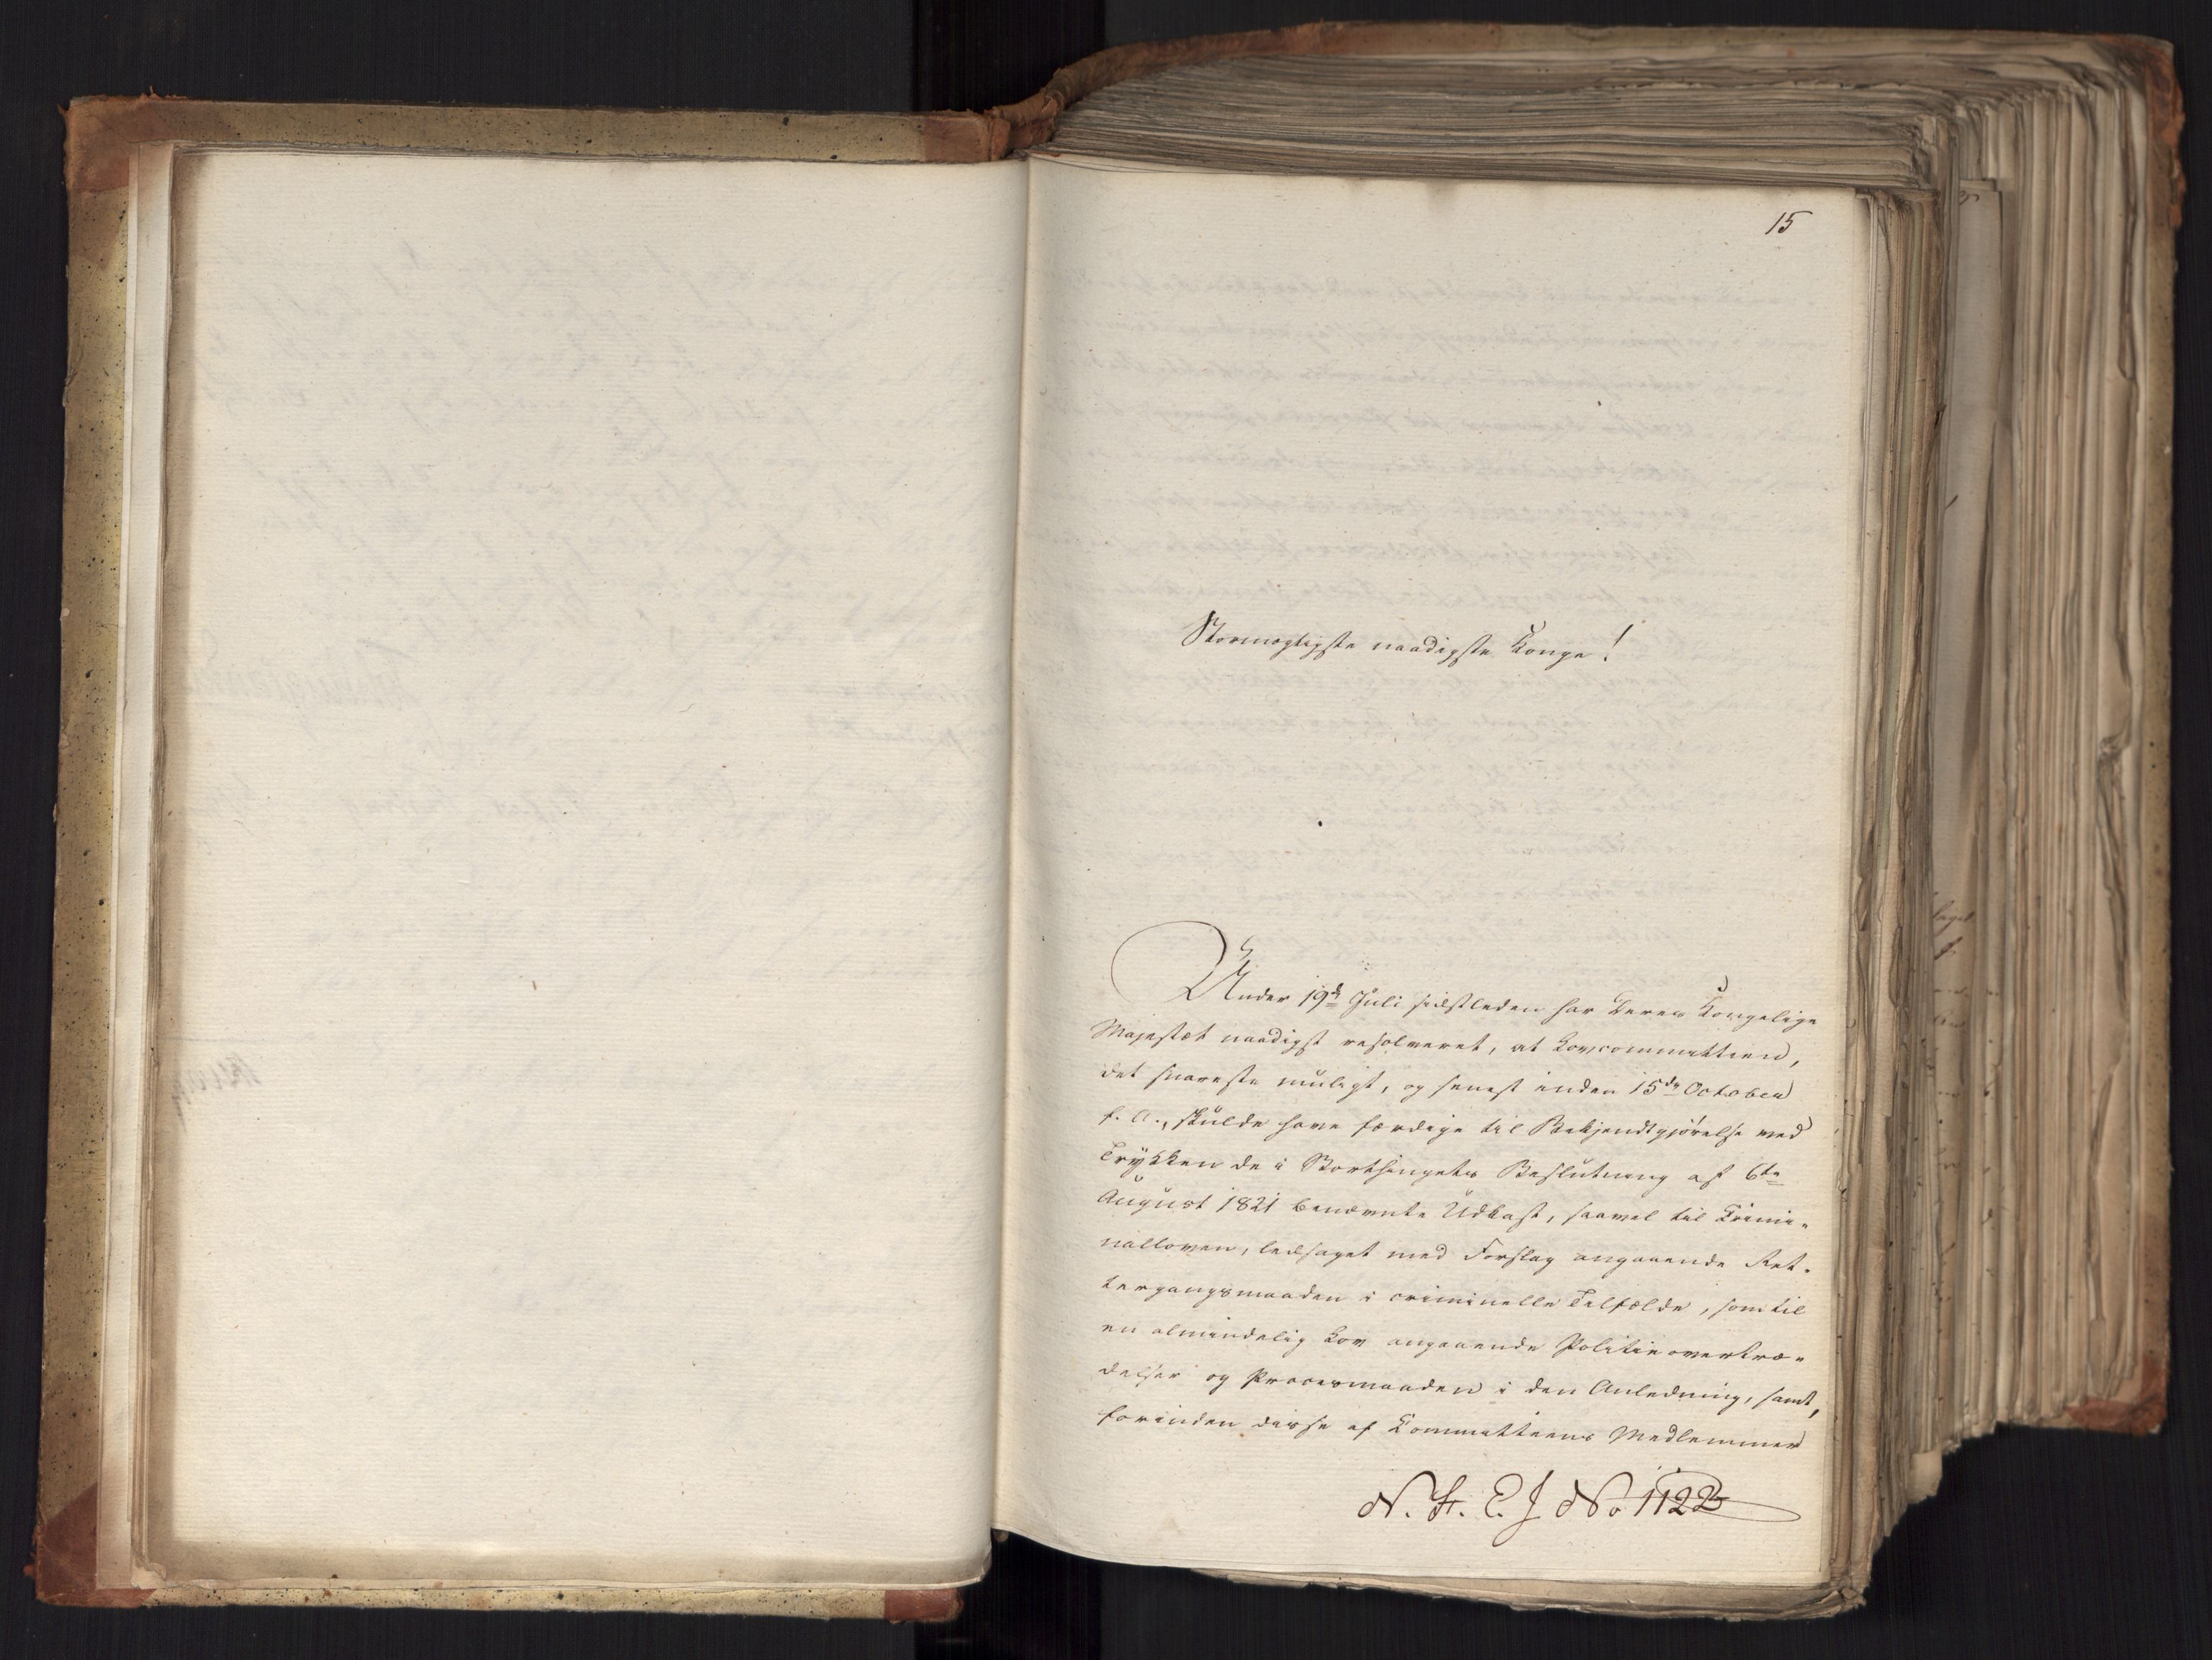 15
Stormægtigste naadigste Konge!
Under 19de Juli sidstleden har Deres Kongelige
Majestæt naadigst resolveret, at Lovcommitteen,
det snareste muligt, og senest inden 15de October
f. A., skulde have færdige til Bekjendtgjørelse ved
Trykken de i Storthingets Beslutning af 6te
August 1821 benævnte Udkast, saavel til Crimi-
nalloven, ledsaget med Forslag angaaende Ret-
tergangsmaaden i criminelle Tilfælde, som til
en almindelig Lov angaaende Politieovertræ-
delser og Procesmaaden i den Anledning, samt,
forinden disse af Committeens Medlemmer
N. St. E. J No 1122